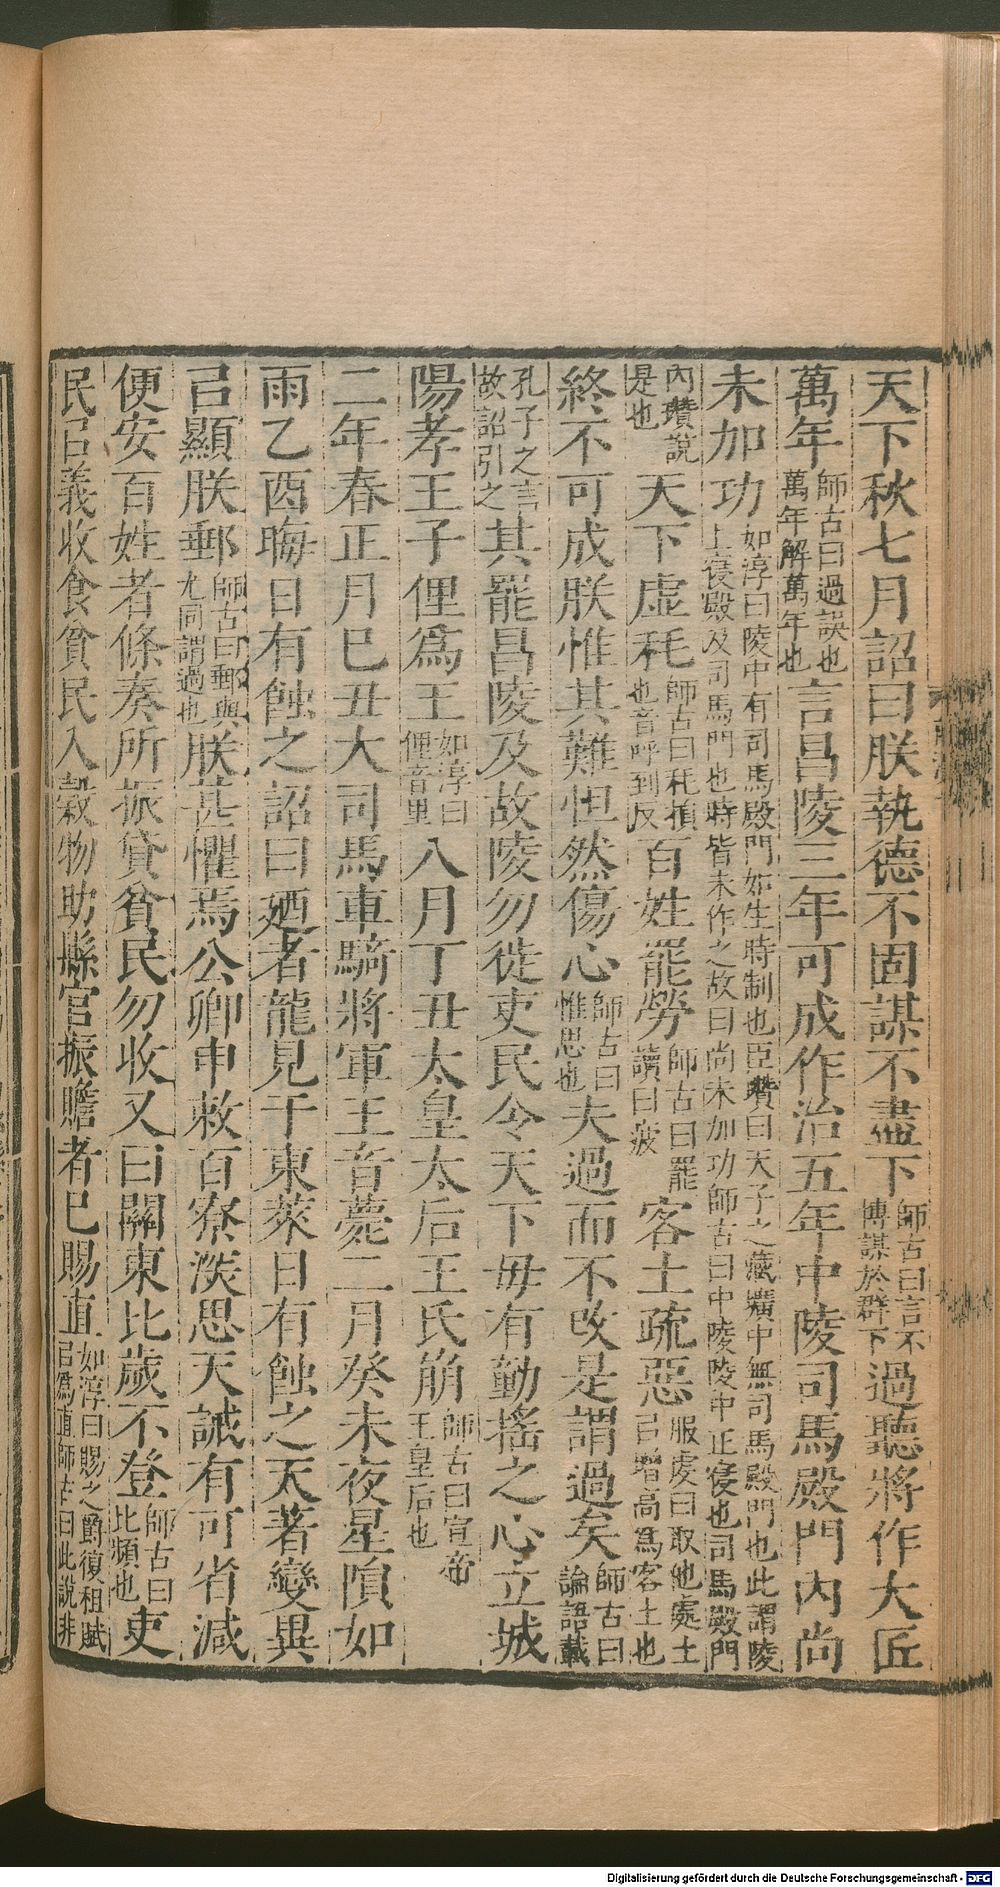 天下秋七月詔曰朕執德不固謀不盡下師古曰言不博謀於群下過聽將作大匠
萬年師古曰過誤也萬年解萬年也言昌陵三年可成作治五年中陵司馬殿門內尚
未加功如淳曰陵中有司馬殿門如生時制也臣瓚曰天子之藏壙中無司馬殿門也此謂陵上寑殿及司馬門也時皆未作之故曰尚未加功師古曰中陵陵中正寑也司馬殿門
內瓚說是也天下虛秏師古曰秏損也音呼到反百姓罷勞師古曰罷讀曰疲客土疏惡服虔曰取他處土㠯增高爲客土也
終不可成朕惟其難怛然傷心師古曰惟思也夫過而不改是謂過矣師古曰論語載
孔子之言故詔引之其罷昌陵及故陵勿徙吏民令天下毋有動搖之心立城
陽孝王子俚爲王如淳曰俚音里八月丁丑太皇太后王氏崩師古曰宣帝王皇后也
二年春正月己丑大司馬車騎將軍王音薨二月癸未夜星隕如
雨乙酉晦日有蝕之詔曰廼者龍見于東萊日有蝕之天著變異
㠯顯朕郵師古曰郵與尤同謂過也朕甚懼焉公卿申敕百寮深思天誡有可省減
便安百姓者條奏所振貸貧民勿收又曰關東比歲不登師古曰比頻也吏
民㠯義收食貧民入穀物助縣官振贍者已賜直如淳曰賜之爵復租賦㠯爲直師古曰此說非
Digitalisierung gefördert durch die Deutsche Forschungsgemeinschaft - DFG